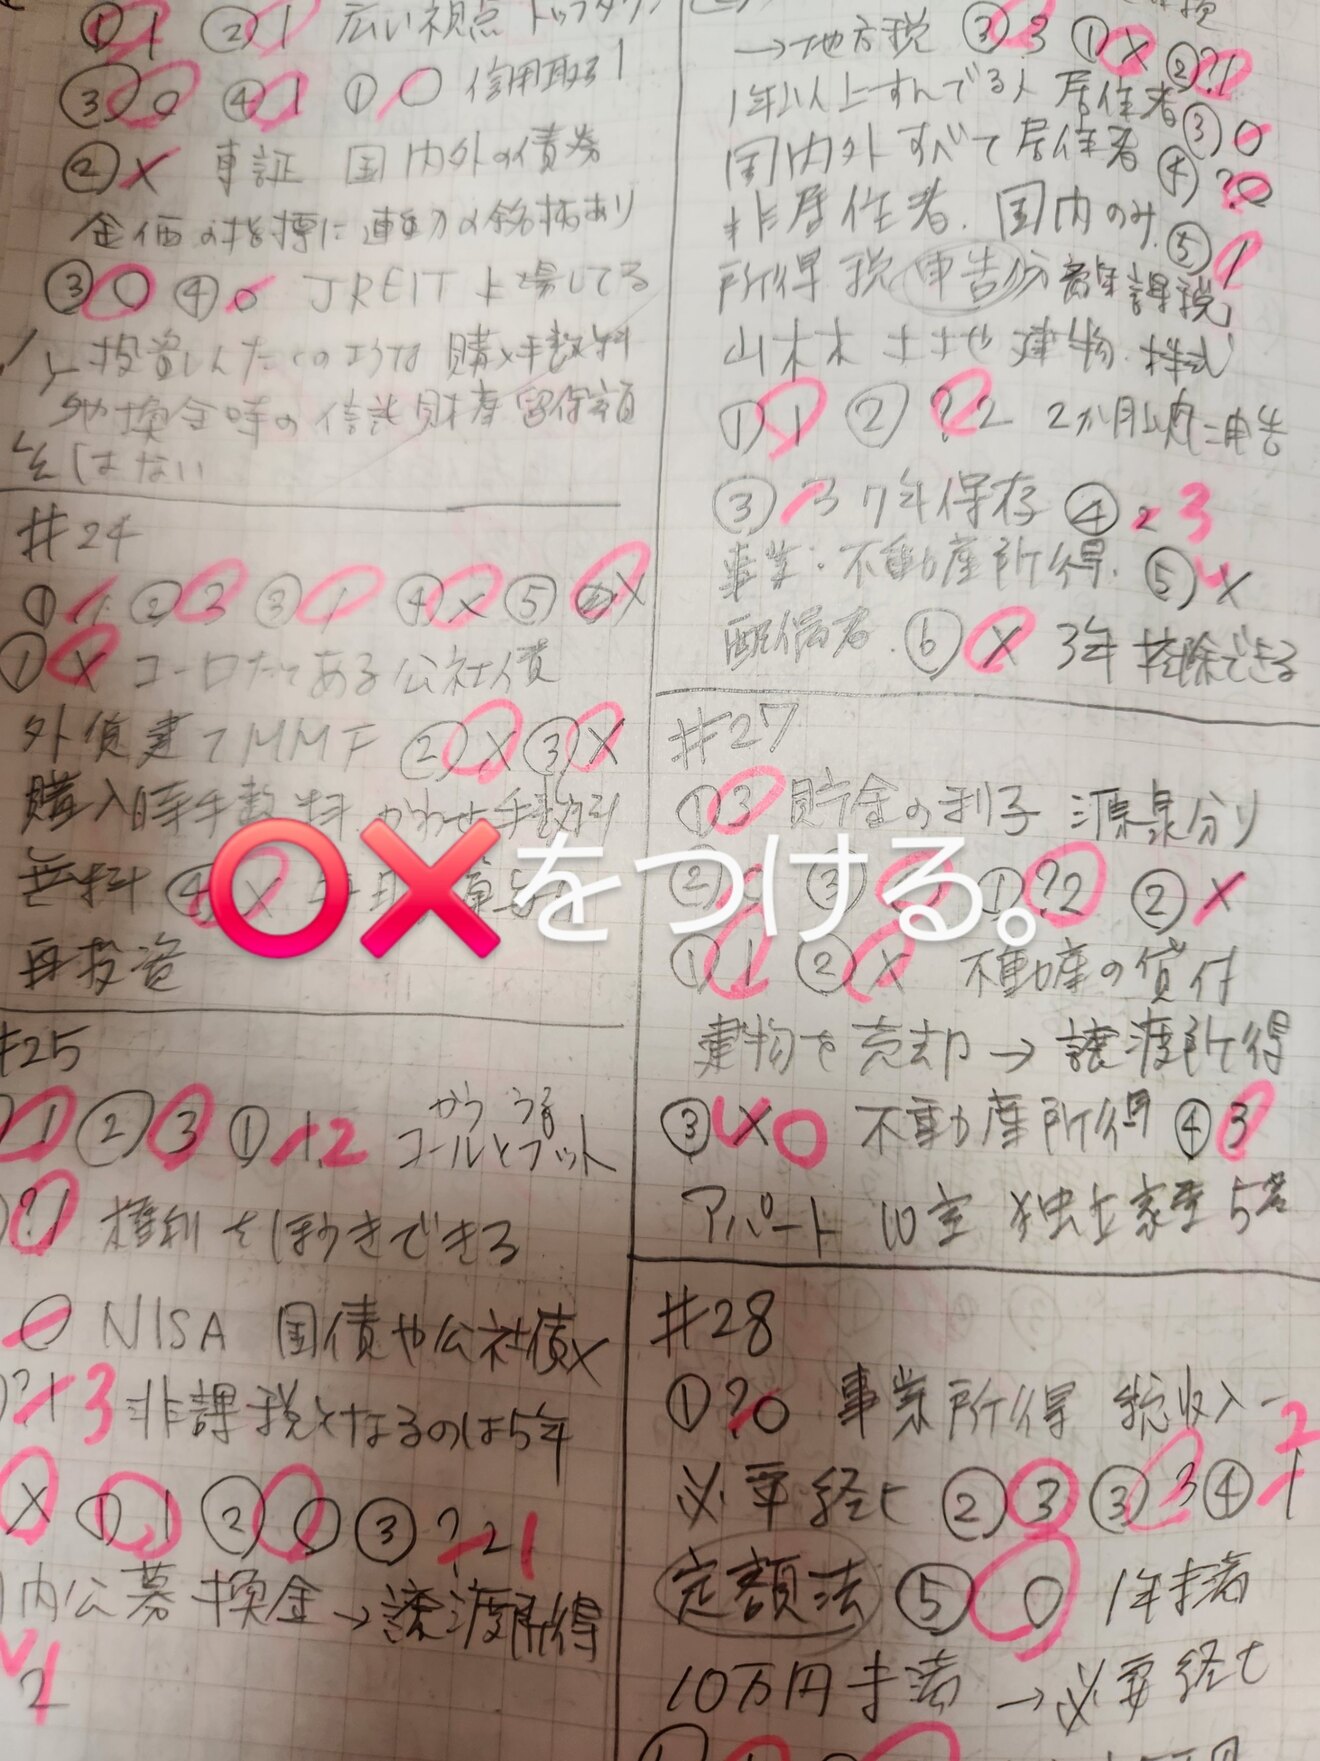 ① 1 ② 1 広い視点 トップダウン
③ ○ ④ 1 ① ○ 信用取引
② × 東証 国内外の債券
金価の指標に連動の銘柄あり
③ ○ ④ ○ JREIT 上場してる
投資しんたくのような 購入手数料
換金時の信託財産留保額
はない
#24
① ② 3 ③ 1 ④ × ⑤ ×
① × ユーロだてある公社債
外貨建てMMF ② × ③ ×
購入時手数料 かわせ手数料
無料 ④ ×
再投資
#25
① 1 ② 3 ① 1 2 かう うる
コールとプット
?1 権利をほうきできる
○ NISA 国債や公社債×
? 1 3 非課税となるのは5年
× ① 1 ② ○ ③ ? 2 1
内公募 換金→譲渡所得
2 1
→地方税 ③ 3 ① × ② ?1
1年以上すんでる人 居住者 ③ ○
国内外すべて居住者 ④ ?○
非居住者. 国内のみ ⑤ 1
所得税 申告分離課税
山林 土地 建物 株式
① 1 ② ?2 2か月以内に申告
③ 3 7年保存 ④ 2 3
事業・不動産所得. ⑤ ×
配偶者. ⑥ × 3年控除できる
#27
① 3 貯金の利子 源泉分り
② ③ ① ?2 ② ×
① 1 ② × 不動産の貸付
建物を売却→譲渡所得
③ × ○ 不動産所得 ④ 3
アパート 10室 独立家屋 5
#28
① ?○ 事業所得 総収入-
必要経ヒ ② 3 ③ 3 ④ 1 2
定額法 ⑤ ○ 1年未満
10万円未満 →必要経ヒ
⭕❌をつける。